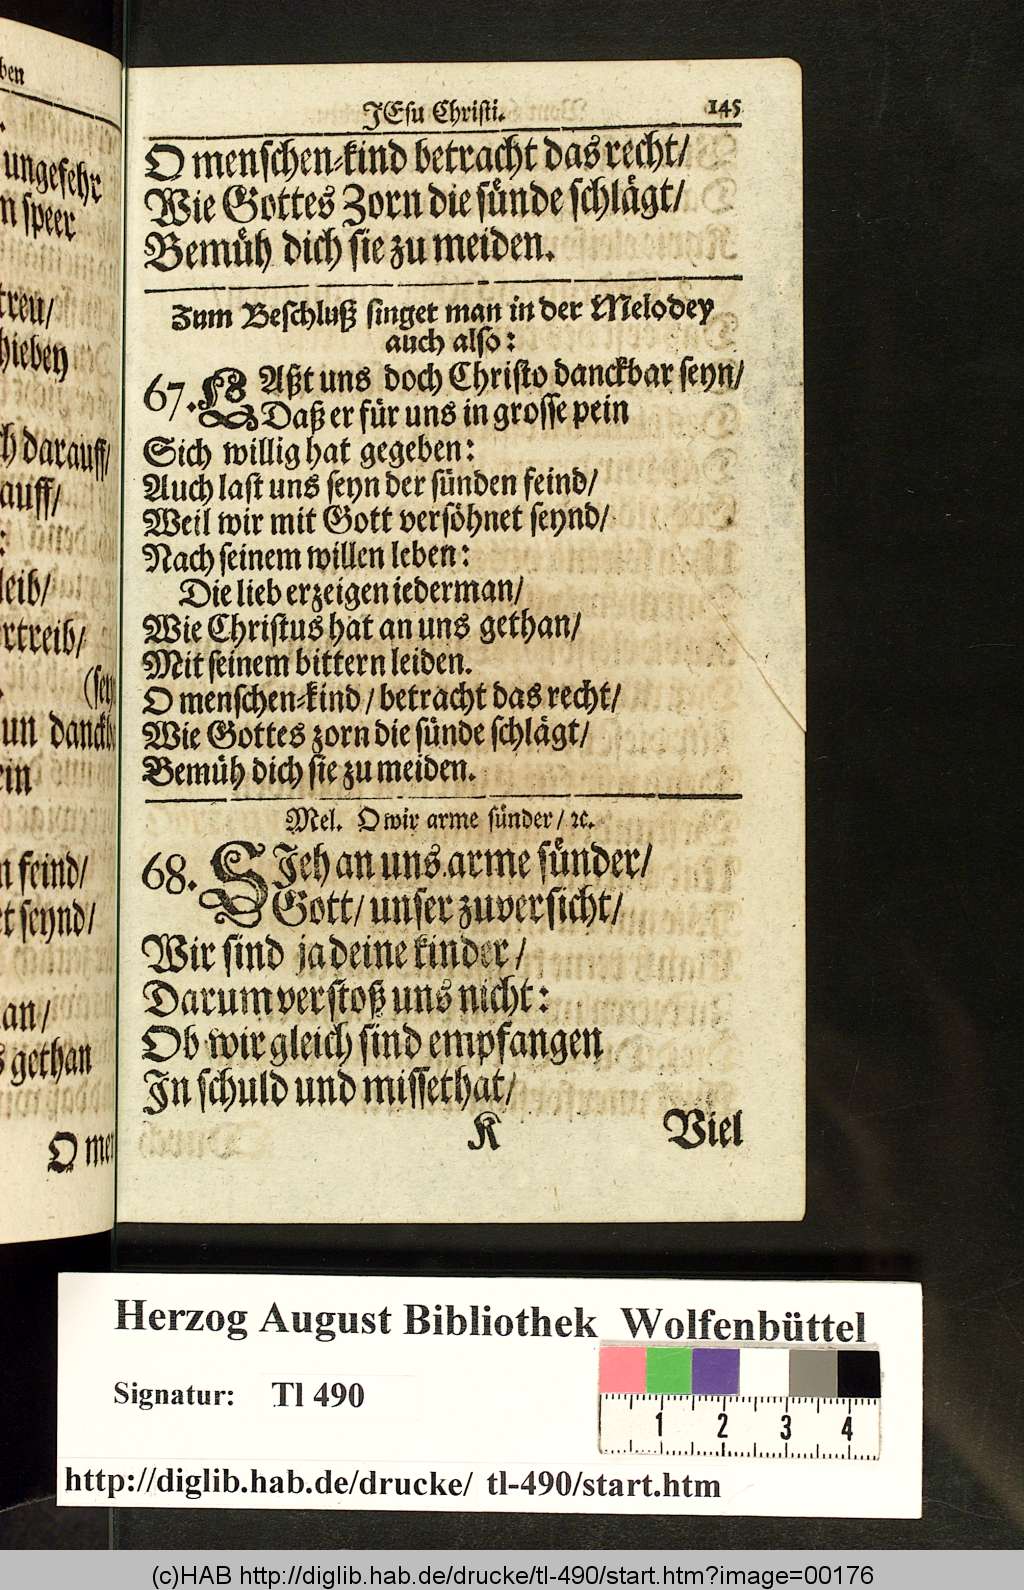 ben
ungefehr
speer
treu/
hiebey
darauff/
auff/
leib/
rtreib/
(sey
un danckb
ein
n feind/
et seynd/
an/
s gethan
O men
JEsu Christi. 145
O menschen-kind betracht das recht/
Wie Gottes Zorn die sünde schlägt/
Bemüh dich sie zu meiden.
Zum Beschluß singet man in der Melodey
auch also:
67. LAßt uns doch Christo danckbar seyn/
Daß er für uns in grosse pein
Sich willig hat gegeben:
Auch last uns seyn der sünden feind/
Weil wir mit Gott versöhnet seynd/
Nach seinem willen leben:
Die lieb erzeigen iederman/
Wie Christus hat an uns gethan/
Mit seinem bittern leiden.
O menschen-kind/ betracht das recht/
Wie Gottes zorn die sünde schlägt/
Bemüh dich sie zu meiden.
Mel. O wir arme sünder/ ꝛc.
68. SIeh an uns arme sünder/
Gott/ unser zuversicht/
Wir sind ja deine kinder/
Darum verstoß uns nicht:
Ob wir gleich sind empfangen
In schuld und missethat/
K Viel
Herzog August Bibliothek Wolfenbüttel
Signatur: Tl 490
1 2 3 4
http://diglib.hab.de/drucke/ tl-490/start.htm
(c)HAB http://diglib.hab.de/drucke/tl-490/start.htm?image=00176